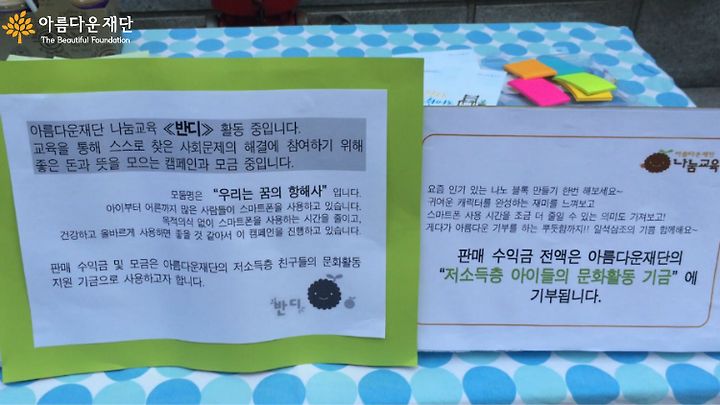 아름다운재단
The Beautiful Foundation
아름다운재단 나눔교육 ≪반디≫ 활동 중입니다.
교육을 통해 스스로 찾은 사회문제의 해결에 참여하기 위해
좋은 돈과 뜻을 모으는 캠페인과 모금 중입니다.
모둠명은 “우리는 꿈의 항해사” 입니다.
아이부터 어른까지 많은 사람들이 스마트폰을 사용하고 있습니다.
목적의식 없이 스마트폰을 사용하는 시간을 줄이고,
건강하고 올바르게 사용하면 좋을 것 같아서 이 캠페인을 진행하고 있습니다.
판매 수익금 및 모금은 아름다운재단의 저소득층 친구들의 문화활동
지원 기금으로 사용하고자 합니다.
반디
아름다운재단
나눔교육
요즘 인기 있는 나노 블록 만들기 한번 해보세요~
귀여운 캐릭터를 완성하는 재미를 느껴보고
스마트폰 사용 시간을 조금 더 줄일 수 있는 의미도 가져보고!
게다가 아름다운 기부를 하는 뿌듯함까지!! 일석삼조의 기쁨 함께해요~
판매 수익금 전액은 아름다운재단의
“저소득층 아이들의 문화활동 기금” 에
기부됩니다.